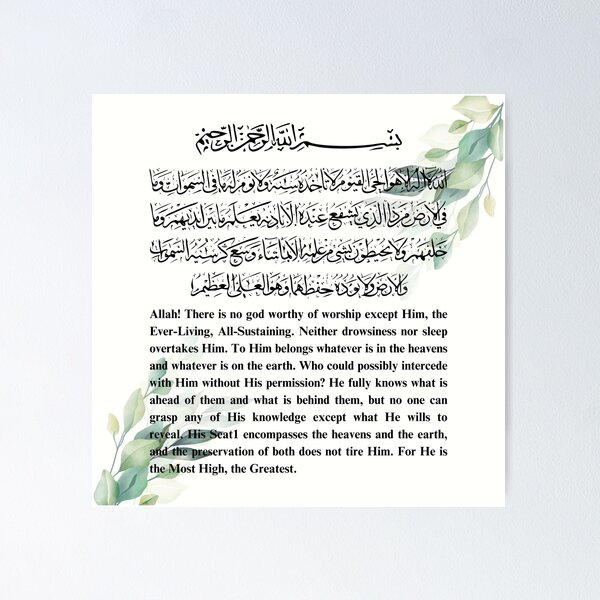 بسم الله الرحمن الرحيم
الله لا إله إلا هو الحي القيوم لا تأخذه سنة ولا نوم له ما في السموات وما
في الأرض من ذا الذي يشفع عنده إلا بإذنه يعلم ما بين أيديهم وما
خلفهم ولا يحيطون بشيء من علمه إلا بما شاء وسع كرسيه السموات
والأرض ولا يئوده حفظهما وهو العلي العظيم
Allah! There is no god worthy of worship except Him, the
Ever-Living, All-Sustaining. Neither drowsiness nor sleep
overtakes Him. To Him belongs whatever is in the heavens
and whatever is on the earth. Who could possibly intercede
with Him without His permission? He fully knows what is
ahead of them and what is behind them, but no one can
grasp any of His knowledge except what He wills to
reveal. His Seat1 encompasses the heavens and the earth,
and the preservation of both does not tire Him. For He is
the Most High, the Greatest.